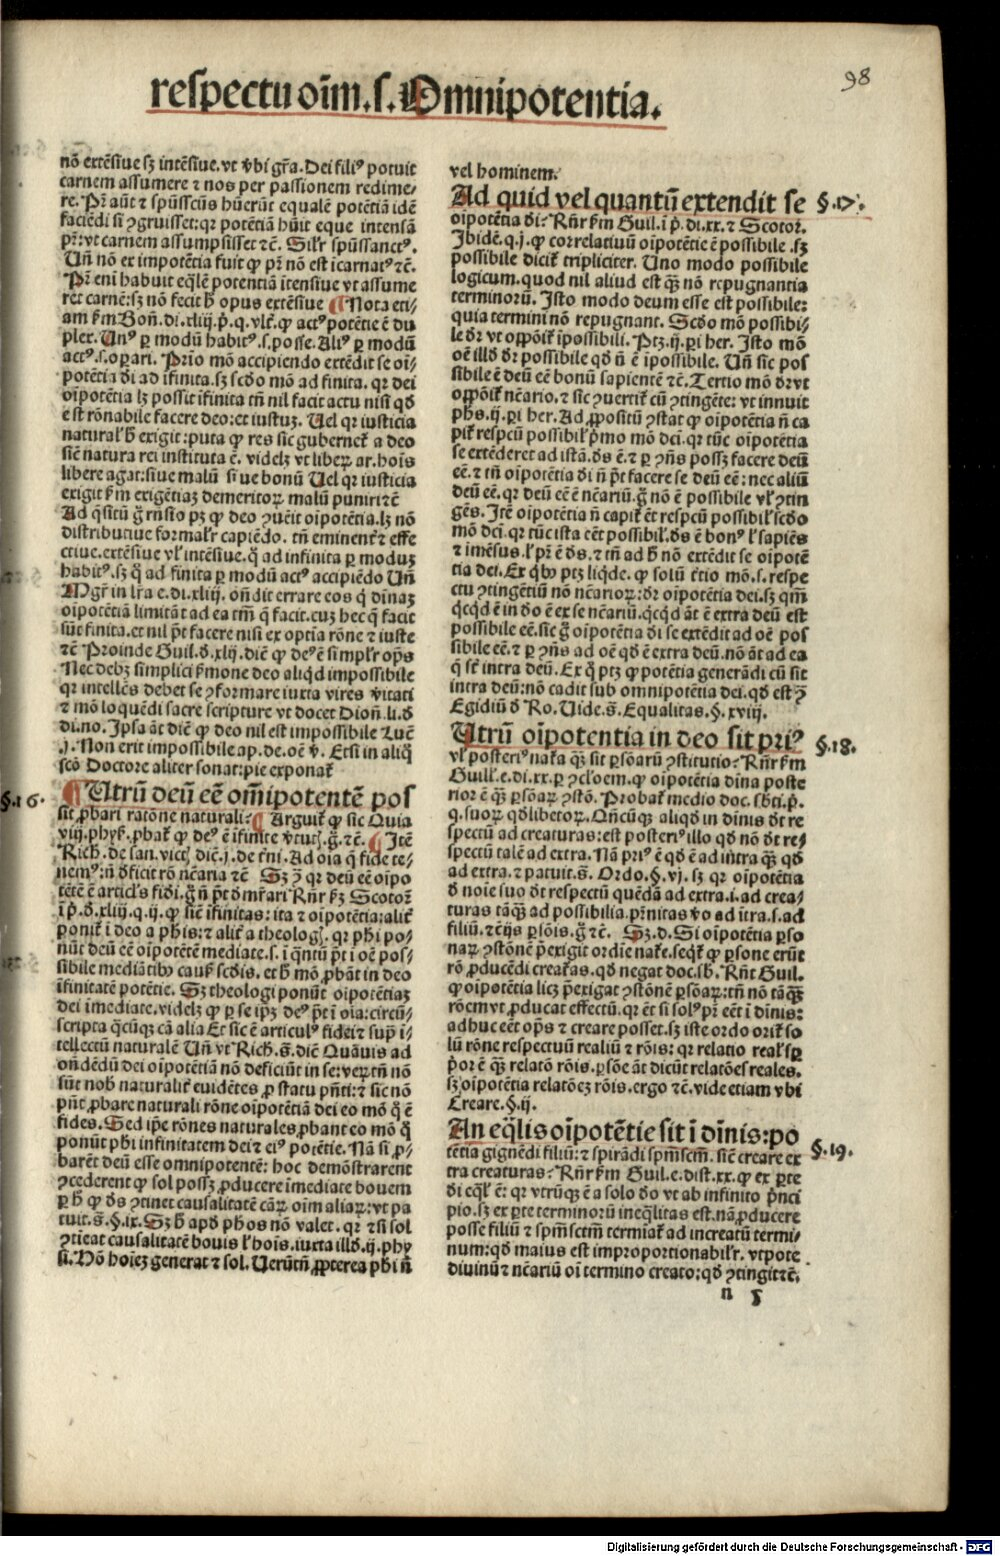 98
respectu oīm. s. Omnipotentia.
nō extēsiue sꝫ intēsiue. vt v̄bi gr̄a. Dei filiꝰ potuit
carnem assumere ⁊ nos per passionem redime-
re. Pr̄ aūt ⁊ spūsscūs hūerūt equalē potētiā idē
faciēdi si ꝯgruisset: qꝛ potētiā hūit eque intensā
pr̄: vt carnem assumpsisset ⁊c̄. Sil̄r spūssanctꝰ.
Un̄ nō ex impotētia fuit ꝙ pr̄ nō est īcarnatꝰ ⁊c̄.
Pr̄ eni habuit eq̄lē potentiā itensiue vt assume
ret carnē: sꝫ nō fecit h̄ opus extēsiue ¶ Nota eti-
am ẜm Bon̄. di. xliij. p̄. q. vlt̄. ꝙ actꝰ potētie ē du
plex. Unꝰ ꝑ modū habitꝰ. s. posse. Aliꝰ ꝑ modū
actꝰ. s. oꝑari. Prīo mō accipiendo extēdit se oī-
potētia di ad īfinita. sꝫ scd̄o mō ad finita. qꝛ dei
oīpotētia lꝫ possit īfinita tn̄ nil facit actu nisi qd̄
est rōnabile facere deo: et iustuꝫ. Uel qꝛ iusticia
natural̄ h̄ exigit: puta ꝙ res sic gubernet̄ a deo
sic̄ natura rei instituta ē. videlꝫ vt libeꝝ ar. hoīs
libere agat: siue malū siue bonū Uel qꝛ iusticia
exigit ẜm exigētiaꝫ demeritoꝝ malū puniri ⁊c̄
Ad q̄sitū g̊ rn̄sio pꝫ ꝙ deo ꝯuēit oīpotētia. lꝫ nō
distributiue formal̄r capiēdo. tn̄ eminent̄ ⁊ effe
ctiue. extēsiue vl̄ intēsiue. q̄ ad infinita ꝑ moduꝫ
habitꝰ. sꝫ q̄ ad finita ꝑ modū actꝰ accipiēdo Un̄
Mgr̄ in lr̄a e. di. xliij. on̄dit errare eos q̇ dīnaꝫ
oīpotētiā limitāt ad ea tm̄ q̄ facit. cuꝫ hec q̄ facit
sūt finita. et nil p̄t facere nisi ex optīa rōne ⁊ iuste
⁊c̄ Proinde Guil. d. xlij. dic̄ ꝙ deꝰ ē simpl̄r op̄s
Nec debꝫ simplici ẜmone deo aliqd impossibile
qꝛ intellēs debet se ꝯformare iuxta vires v̄itati
⁊ mō loquēdi sacre scripture vt docet Dion̄. li. d
di. no. Ipsa āt dic̄ ꝙ deo nil est impossibile Luc̄
.j. Non erit impossibile ap. de. oē v̄. Etsi in aliq̊
scō Doctore aliter sonat: pie exponat̄
§. 16. ¶ Utrū deū eē om̄ipotentē pos
sit ꝓbari ratōne naturali: ¶ Arguit̄ ꝙ sic Quia
viij. phys̄. ꝓbat̄ ꝙ deꝰ ē īfinite v̄tutꝭ. g̊. ⁊c̄. ¶ Itē
Rich. de san. victꝭ dic̄. j. de tn̄i. Ad oīa q̄ fide te-
nemꝰ: n̄ dficit rō nc̄aria ⁊c̄ Sꝫ ꝯ̄ qꝛ deū eē oīpo
tētē ē articls̄ fidi. g̊ n̄ p̄t dmr̄ari Rn̄r ẜꝫ Scotoꝝ
ī p̄. d. xliij. q. ij. ꝙ sic̄ īfinitas: ita ⁊ oīpotētia: alit̄
ponit̄ ī deo a phīs: ⁊ alit̄ a theologꝭ. qꝛ phī po-
nūt deū eē oīpotētē mediate. s. ī q̄ntū p̄t ī oē pos-
sibile mediātibꝰ causꝭ scd̄is. et h̄ mō ꝓbāt in deo
īfinitatē potētie. Sꝫ theologi ponūt oīpotētiaꝫ
dei īmediate. videlꝫ ꝙ ꝑ se ip̄ꝫ deꝰ p̄t ī oīa: circū-
scripta q̄cūqꝫ cā alia Et sic ē articulꝰ fidei ⁊ sup̄ ī-
tellectū naturalē Un̄ vt Rich. s̄. dic̄ Quāuis ad
on̄dēdū dei oīpotētiā nō deficiūt in se: veꝝtn̄ nō
sūt nob̄ naturalit̄ euidētes ꝓ statu pn̄ti: ⁊ sic nō
pn̄t ꝓbare naturali rōne oīpotētiā dei eo mō q̊ ē
fides. Sed ip̄e rōnes naturales ꝓbant eo mō q̊
ponūt phī infinitatem dei ⁊ eiꝰ potētie. Nā si ꝓ-
barēt deū esse omnipotentē: hoc demōstrarent
ꝯcederent ꝙ sol possꝫ ꝓducere īmediate bouem
ꝑ h̄ ꝙ ds̄ ꝯtinet causalitatē cāꝝ oīm aliaꝝ: vt pa
tuit. s̄. §. ix. Sꝫ h̄ apd phōs nō valet. qꝛ ⁊ si sol
ꝯtieat causalitatē bouis l̄ hoīs. iuxta illd̄. ij. phy
si. Hō hoīeꝫ generat ⁊ sol. Uerūtn̄ ꝓpterea phī n̄
vel hominem.
Ad quid vel quantū extendit se §. 17.
oīpotētia di: Rn̄r ẜm Guil. ī p̄. di. xx. ⁊ Scotoꝝ
Ibidē. q. j. ꝙ correlatiuū oīpotētie ē possibile. sꝫ
possibile dicit̄ tripliciter. Uno modo possibile
logicum. quod nil aliud est qꝫ̄ nō repugnantia
terminorū. Isto modo deum esse est possibile:
quia termini nō repugnant. Scd̄o mō possibi-
le dr̄ vt oppōit̄ īpossibili. Ptꝫ. ij. ꝑi her. Isto mō
oē illd̄ dr̄ possibile qd̄ n̄ ē īpossibile. Un̄ sic pos
sibile ē deū eē bonū sapientē ⁊c̄. Tertio mō dr̄ vt
oppōit̄ nc̄ario. ⁊ sic ꝯuertit̄ cū ꝯtingēte: vt innuit
phs̄. ij. ꝑi her. Ad ꝓpositū ꝯstat ꝙ oīpotētia n̄ ca
pit̄ respcū possibil̄ p̄mo mō dc̄i. qꝛ tūc oīpotētia
se extēderet ad ista. ds̄ ē. ⁊ ꝑ ꝯn̄s possꝫ facere deū
eē. ⁊ tn̄ oīpotētia di n̄ p̄t facere se deū eē: nec aliū
deū eē. qꝛ deū eē ē nc̄ariū. g̊ nō ē possibile vl̄ ꝯtin
gēs. Itē oīpotētia n̄ capit̄ ēt respcū possibil̄ scd̄o
mō dc̄i. qꝛ tūc ista eēt possibil̄. ds̄ ē bonꝰ l̄ sapiēs
⁊ īmēsus. l̄ pr̄ ē ds̄. ⁊ tn̄ ad h̄ nō extēdit se oīpotē
tia dei. Ex qibꝰ ptꝫ liq̇de. ꝙ solū t̄tio mō. s. respe
ctu ꝯtingētiū nō nc̄arioꝝ: dr̄ oīpotētia dei. sꝫ qm̄
qcqd ē in do ē ex se nc̄ariū. qcqd āt ē extra deū est
possibile eē. sic g̊ oīpotētia di se extēdit ad oē pos
sibile eē. ⁊ ꝑ ꝯn̄s ad oē qd̄ ē extra deū. nō āt ad ea
q̄ st̄ intra deū. Ex q̊ ptꝫ ꝙ potētia generādi cū sit
intra deū: nō cadit sub omnipotētia dei. qd̄ est ꝯ̄
Egidiū d Ro. Uide. s̄. Equalitas. §. xviij.
Utrū oīpotentia in deo sit priꝰ §. 18.
vl̄ posteriꝰ nat̄a qꝫ̄ sit ꝑsōarū ꝯstitutio: Rn̄r ẜm
Guill̄. e. di. xx. ꝑ ꝯcl̄oem. ꝙ oīpotētia dīna poste
rior ē qꝫ̄ ꝑsōaꝝ ꝯstō. Probat̄ medio doc. sb̄ti. p̄.
q. suoꝝ qd̄libetoꝝ. Qn̄cūqꝫ aliqd in dīnis dt̄ re
spectū ad creaturas: est posteriꝰ illo qd̄ nō dt̄ re-
spectū talē ad extra. Nā priꝰ ē qd̄ ē ad intra qꝫ̄ qd̄
ad extra. ⁊ patuit. s̄. Ordo. §. vj. sꝫ qꝛ oīpotētia
d noīe suo dt̄ respectū quēdā ad extra. i. ad crea-
turas tāqꝫ̄ ad possibilia. pr̄nitas v̊o ad ītra. s. ad
filiū. ⁊ c̄ijs ꝑsōis. g̊ ⁊c̄. Sꝫ. d. Si oīpotētia ꝑso
naꝝ ꝯstōnē p̄exigit ordīe nat̄e. seqt̄ ꝙ ꝑsone erūt
rō ꝓducēdi creat̄as. qd̄ negat doc. sb̄. Rn̄t Guil.
ꝙ oīpotētia licꝫ p̄exigat ꝯstōnē ꝑsōaꝝ: tn̄ nō tāqꝫ̄
rōem vt ꝓducat effectū. qꝛ ēt si solꝰ pr̄ eēt ī dīnis:
adhuc eēt op̄s ⁊ creare posset. sꝫ iste ordo orit̄ so
lū rōne respectuū realiū ⁊ rōis: qꝛ relatio real̄ sꝑ
p̄or ē qꝫ̄ relatō rōis. ꝑsōe āt dicūt relatōes reales.
sꝫ oīpotētia relatōeꝫ rōis. ergo ⁊c̄. vide etiam vbi
Creare. §. ij.
An eq̄lis oīpotētie sit ī dīnis: po §. 19.
tētia gignēdi filiū: ⁊ spirādi spm̄scm̄. sic̄ creare ex
tra creaturas: Rn̄r ẜm Guil. e. dist. xx. ꝙ ex ꝑte
di eq̄l̄ ē: qꝛ vtrūqꝫ ē a solo do vt ab infinito p̄nci
pio. sꝫ ex ꝑte terminorū ineq̄litas est. nā ꝓducere
posse filiū ⁊ spm̄scm̄ termiat̄ ad increatū termi-
num: qd̄ maius est improportionabil̄r. vtpote
diuinū ⁊ nc̄ariū oī termino creato: qd̄ ꝯtingit ⁊c̄.
n 5
Digitalisierung gefördert durch die Deutsche Forschungsgemeinschaft - DFG